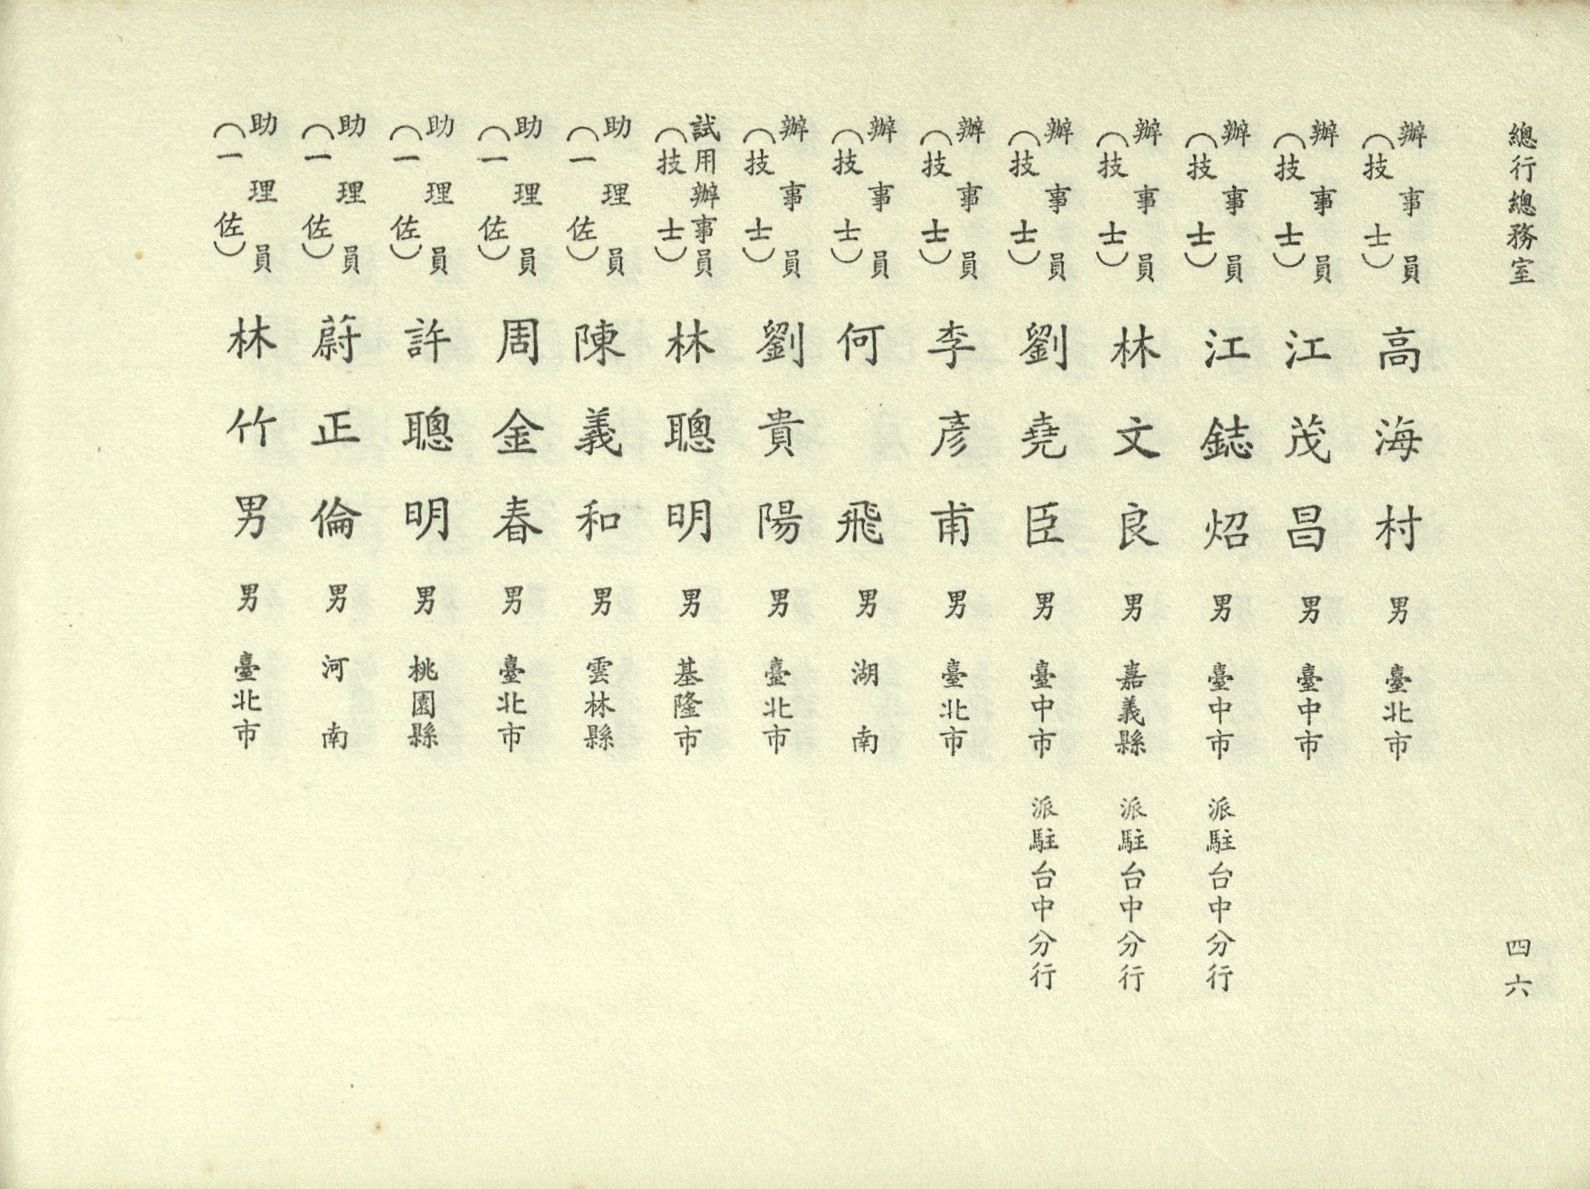 總行總務室 四六
辦事員(技士) 高海村 男 臺北市
辦事員(技士) 江茂昌 男 臺中市
辦事員(技士) 江鋕炤 男 臺中市 派駐台中分行
辦事員(技士) 林文良 男 嘉義縣 派駐台中分行
辦事員(技士) 劉堯臣 男 臺中市 派駐台中分行
辦事員(技士) 李彥甫 男 臺北市
辦事員(技士) 何飛 男 湖南
辦事員(技士) 劉貴陽 男 臺北市
試用辦事員(技士) 林聰明 男 基隆市
助理員(一佐) 陳義和 男 雲林縣
助理員(一佐) 周金春 男 臺北市
助理員(一佐) 許聰明 男 桃園縣
助理員(一佐) 蔚正倫 男 河南
助理員(一佐) 林竹男 男 臺北市